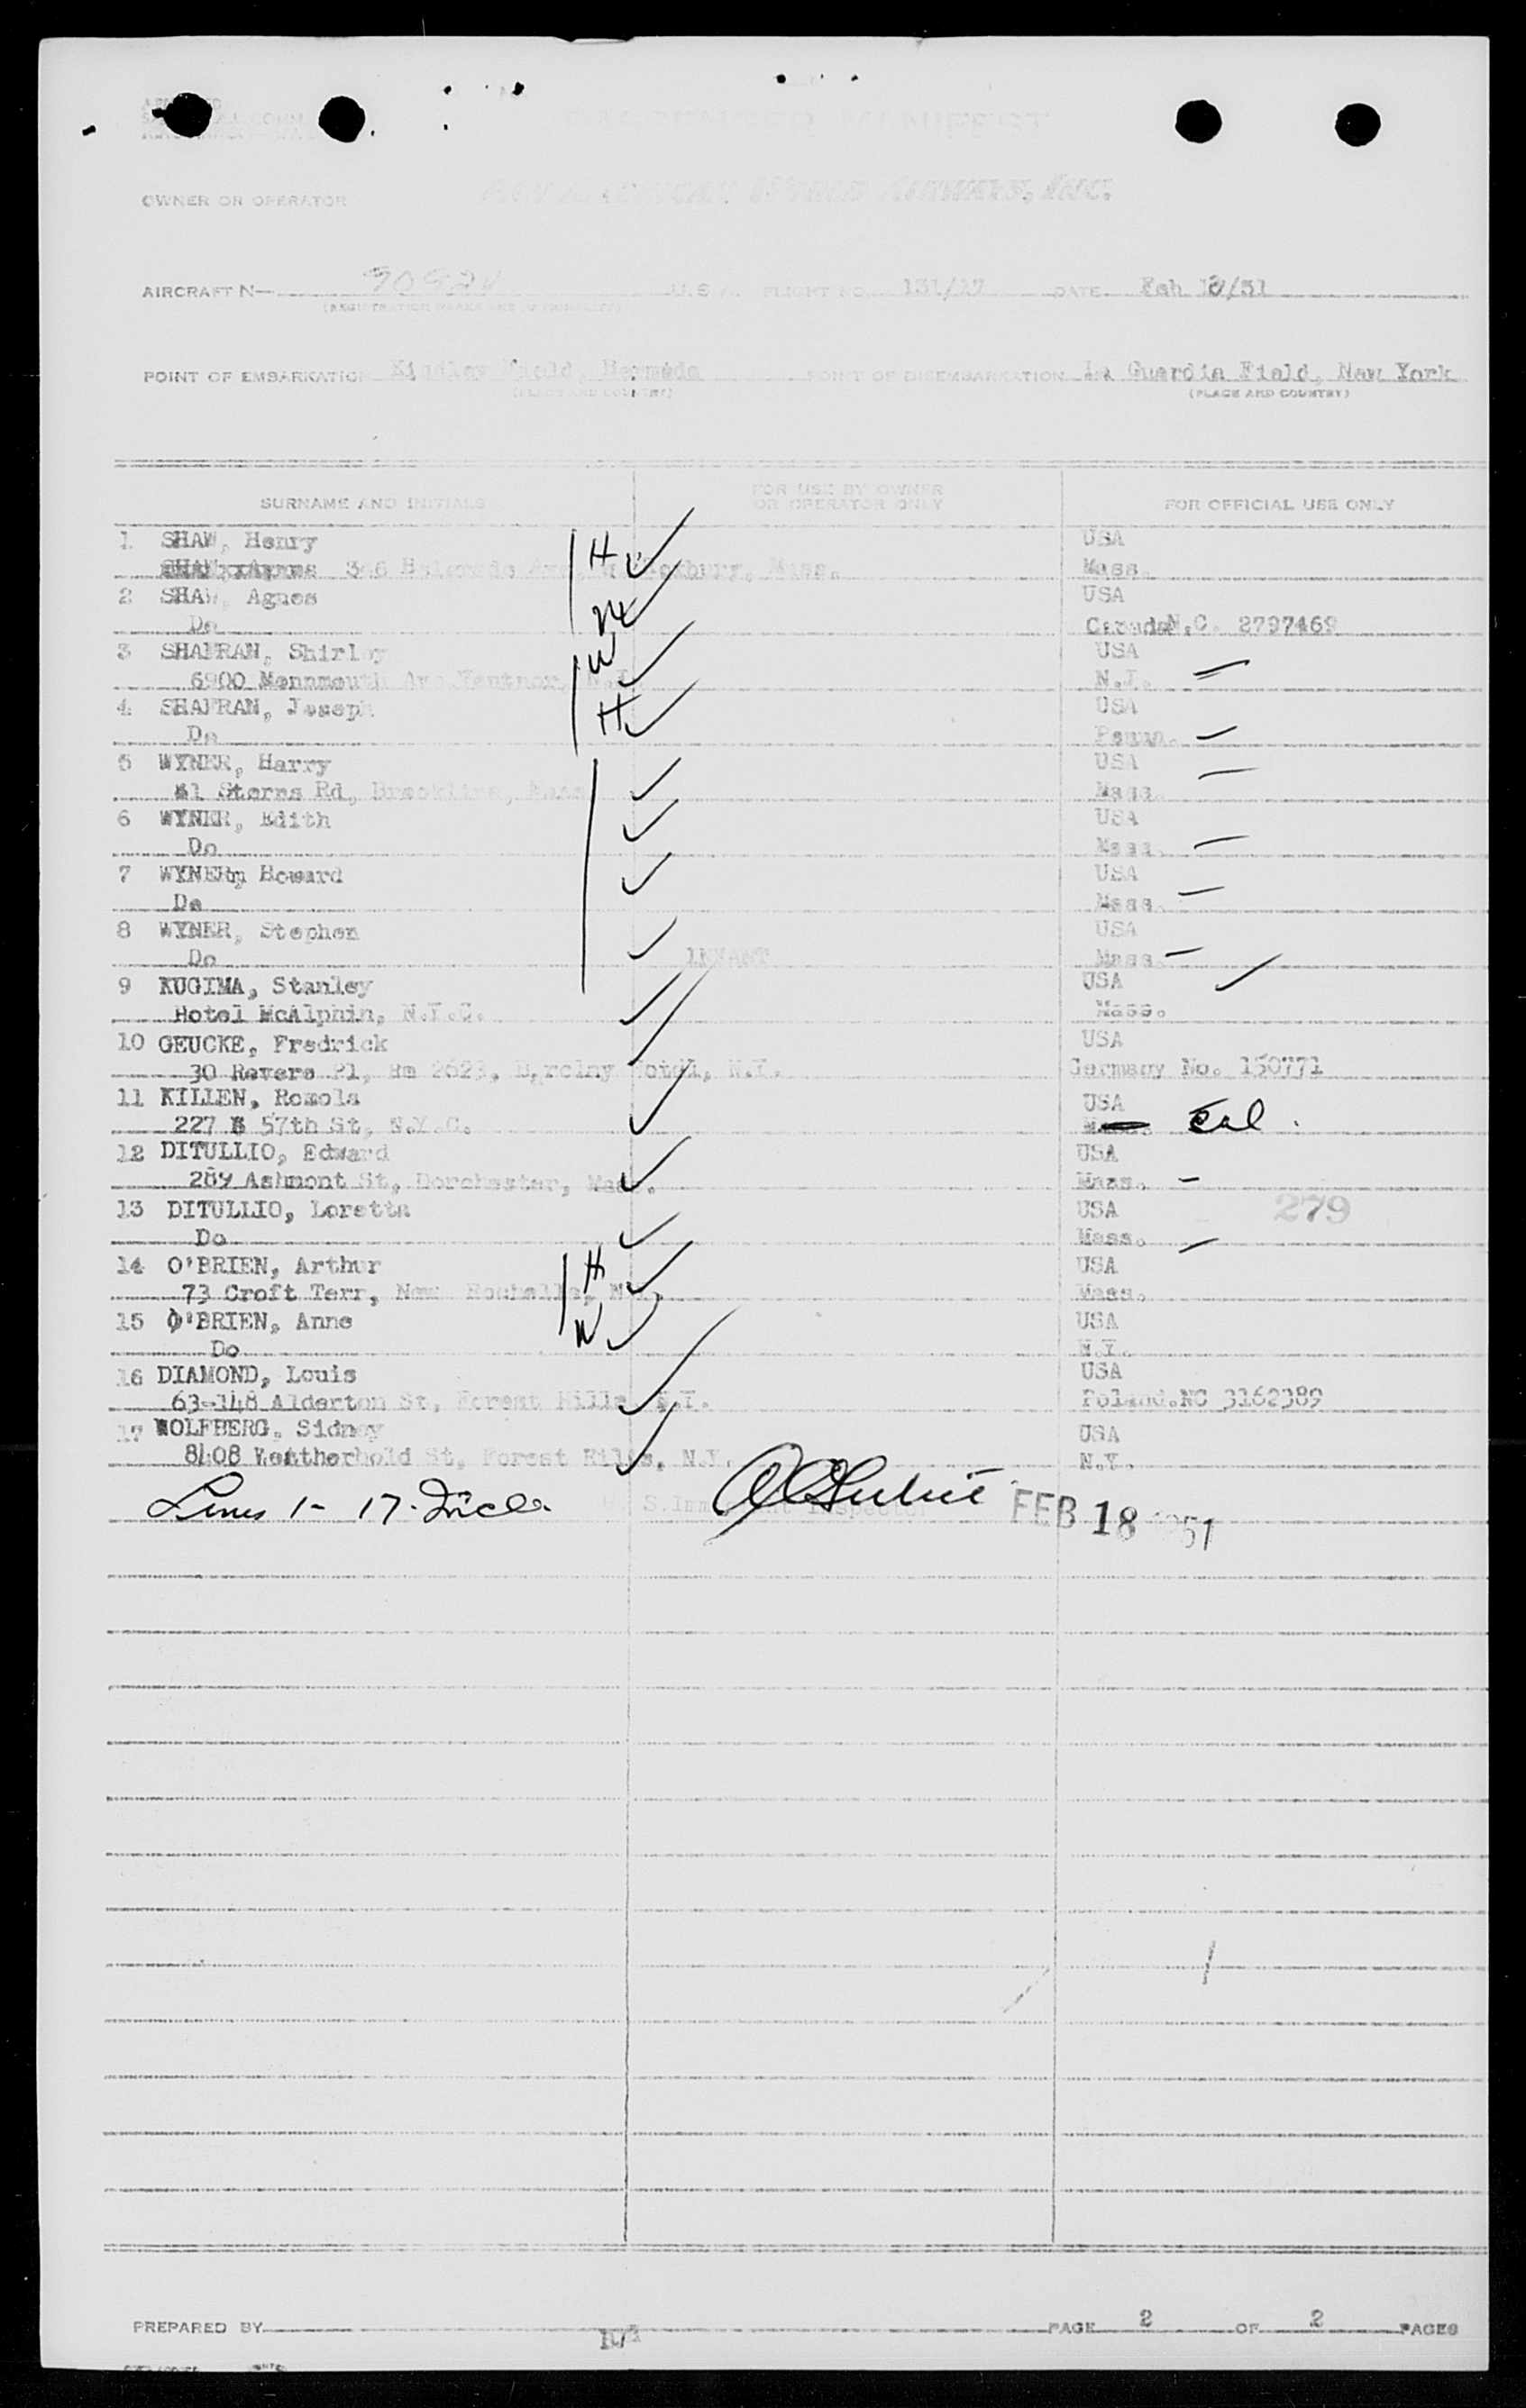 PASSENGER MANIFEST
OWNER OR OPERATOR PAN AMERICAN WORLD AIRWAYS, INC.
AIRCRAFT N— U.S.A. FLIGHT NO. 131/17 DATE Feb 18/51
POINT OF EMBARKATION Kindley Field, Bermuda POINT OF DISEMBARKATION La Guardia Field, New York
(PLACE AND COUNTRY) (PLACE AND COUNTRY)
SURNAME AND INITIALS FOR USE BY OWNER OR OPERATOR ONLY FOR OFFICIAL USE ONLY
1 SHAW, Henry H USA
Roxbury, Mass. Mass.
2 SHAW, Agnes W USA
Do Canada N.C. 2797469
3 SHAFRAN, Shirley W USA
6900 Monnmouth Ave Ventnor, N.J. N.J.
4 SHAFRAN, Joseph H USA
Do Penna.
5 WYNER, Harry USA
41 Sterns Rd, Brookline, Mass Mass.
6 WYNER, Edith USA
Do Mass.
7 WYNER, Howard USA
Do Mass.
8 WYNER, Stephen USA
Do INFANT Mass.
9 KUGIMA, Stanley USA
Hotel McAlphin, N.Y.C. Mass.
10 GEUCKE, Fredrick USA
30 Revere Pl, Rm 2623, Barclay Hotel, N.Y. Germany No. 150771
11 KILLEN, Romola USA
227 E 57th St, N.Y.C. Cal.
12 DITULLIO, Edward USA
289 Ashmont St, Dorchester, Mass. Mass.
13 DITULLIO, Loretta USA 279
Do Mass.
14 O'BRIEN, Arthur H USA
73 Croft Terr, New Rochelle, N.Y. Mass.
15 O'BRIEN, Anne W USA
Do N.Y.
16 DIAMOND, Louis USA
63-148 Alderton St, Forest Hills N.Y. Poland.NC 3162389
17 WOLFBERG, Sidney USA
8408 Weatherbold St, Forest Hills, N.Y. N.Y.
Lines 1-17 Incl. U. S. Immigrant Inspector FEB 18 1951
PREPARED BY PAGE 2 OF 2 PAGES